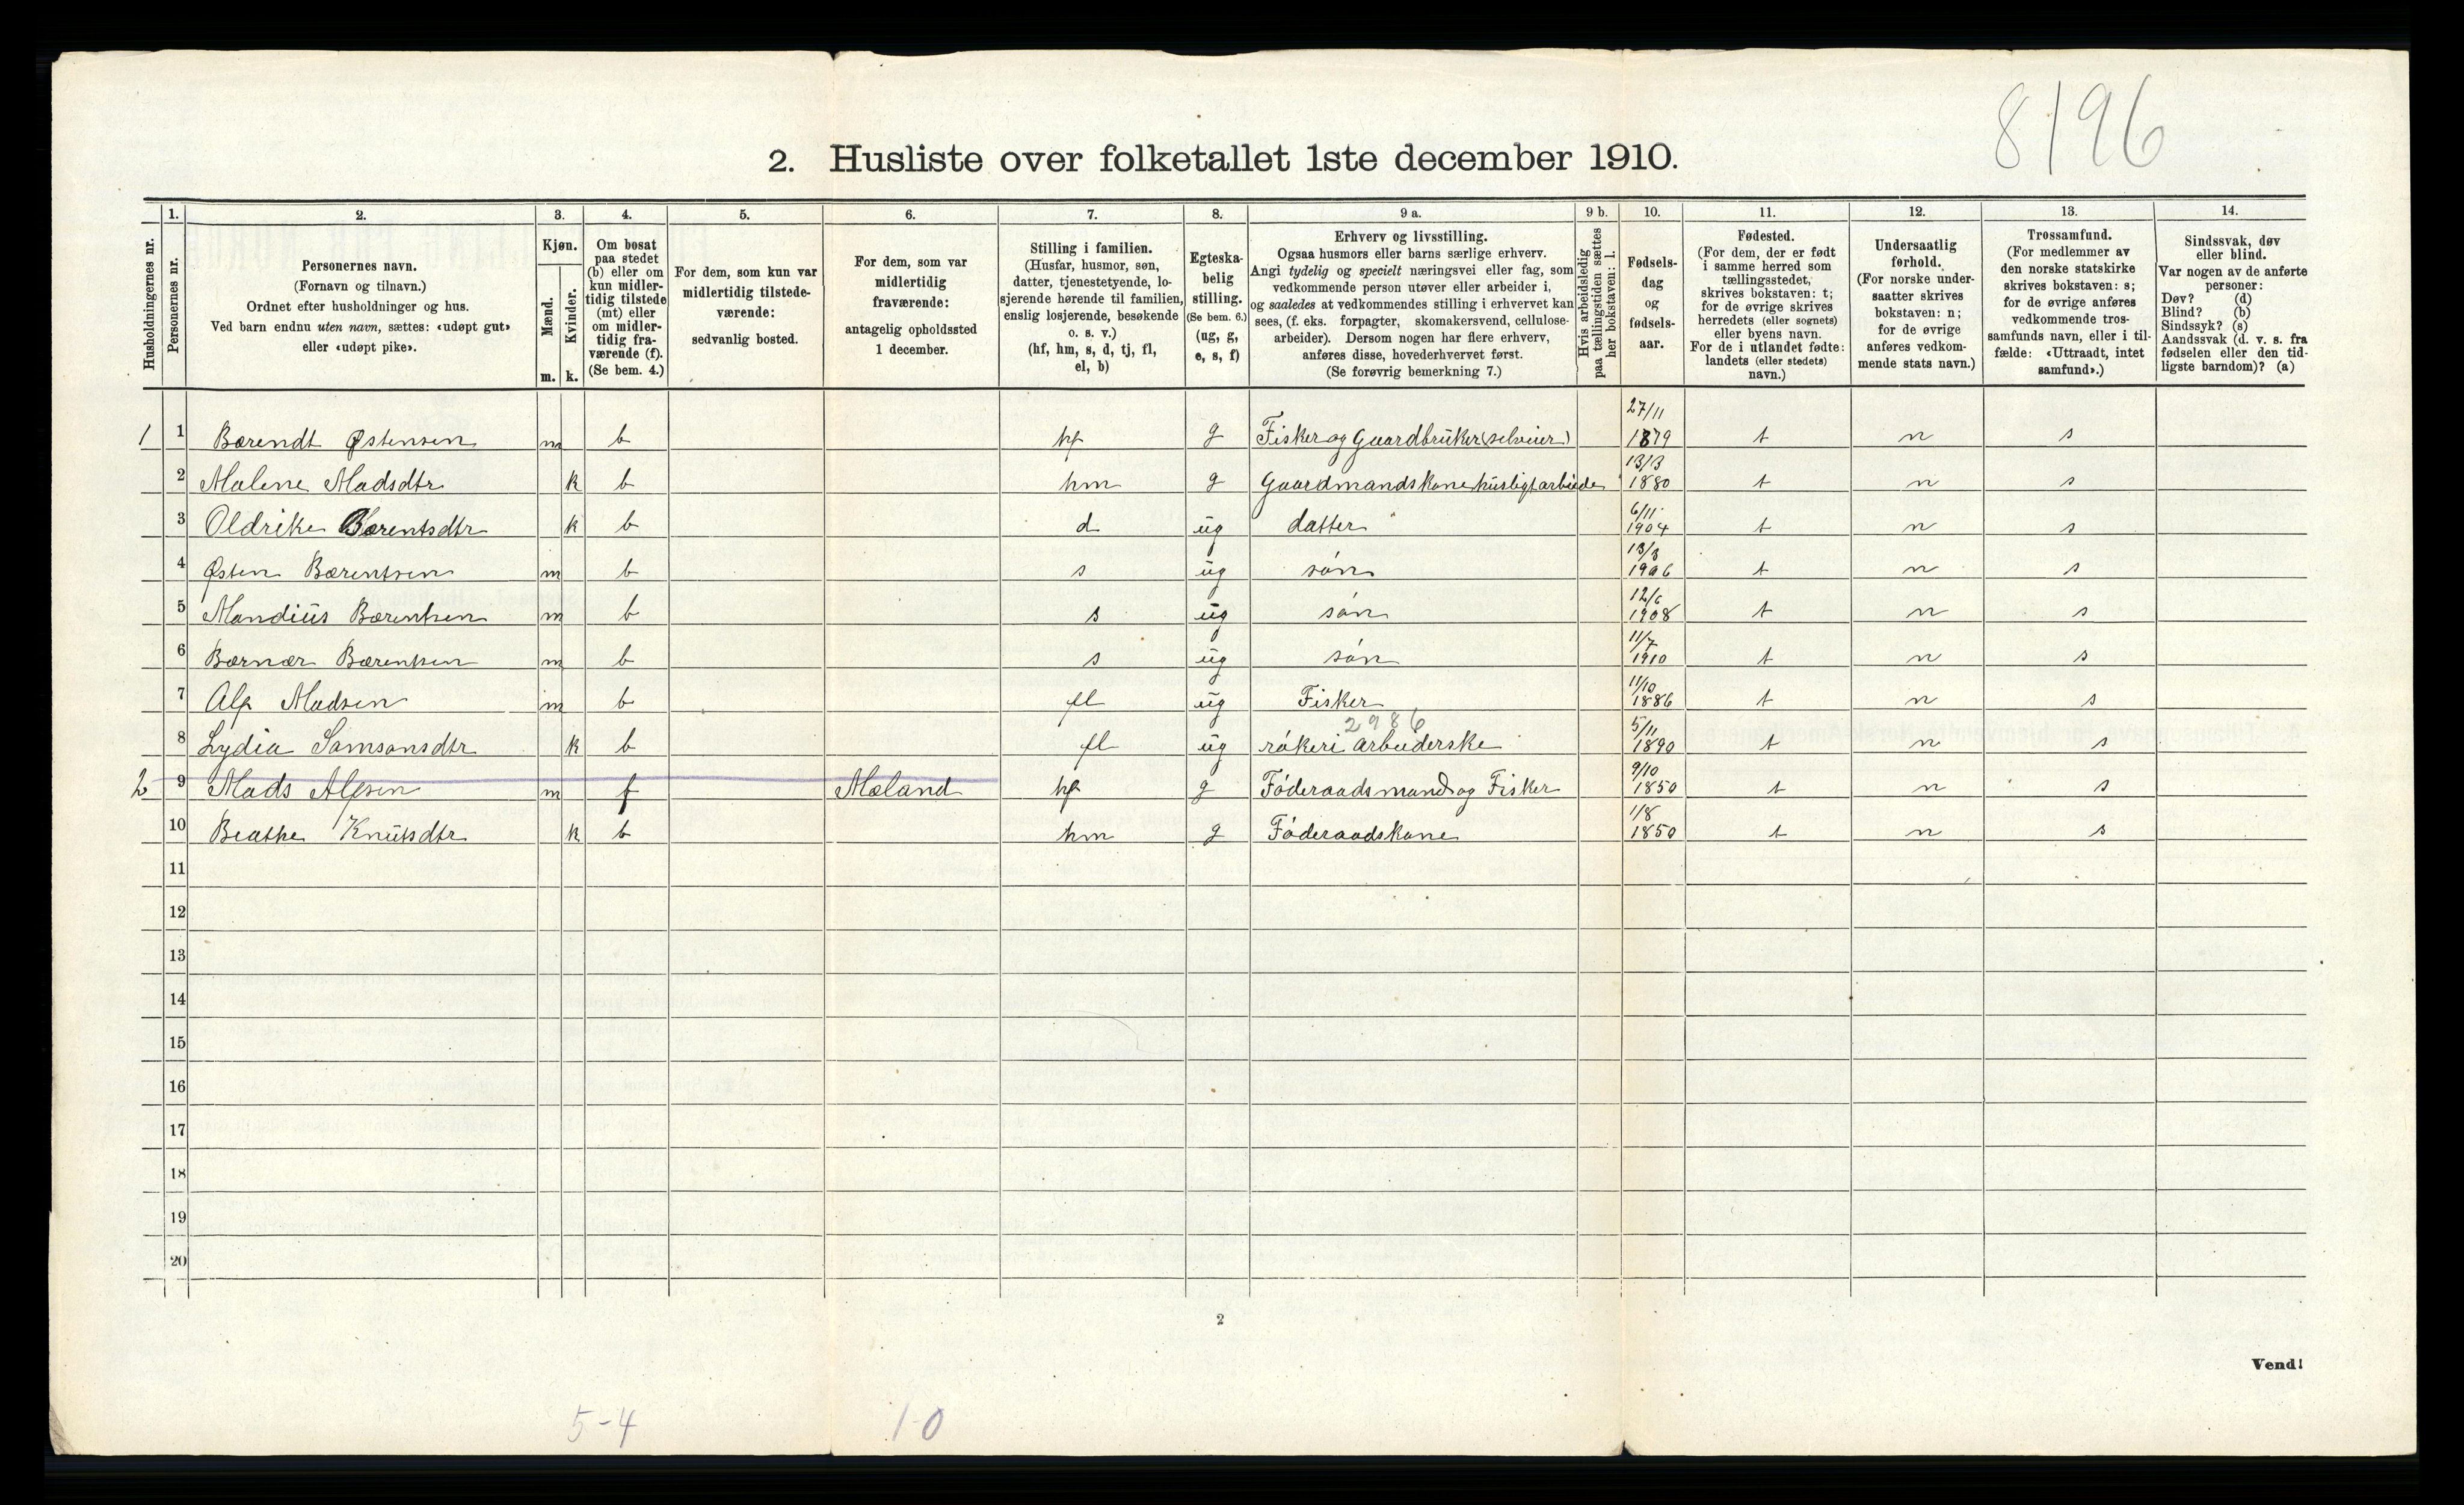 8196
2. Husliste over folketallet 1ste december 1910.
Husholdningernes nr.
1.
Personernes nr.
2.
Personernes navn.
(Fornavn og tilnavn.)
Ordnet efter husholdninger og hus.
Ved barn endnu uten navn, sættes: «udøpt gut»
eller «udøpt pike».
3.
Kjøn.
Mænd.
Kvinder.
m. k.
4.
Om bosat
paa stedet
(b) eller om
kun midler-
tidig tilstede
(mt) eller
om midler-
tidig fra-
værende (f).
(Se bem. 4.)
5.
For dem, som kun var
midlertidig tilstede-
værende:
sedvanlig bosted.
6.
For dem, som var
midlertidig
fraværende:
antagelig opholdssted
1 december.
7.
Stilling i familien.
(Husfar, husmor, søn,
datter, tjenestetyende, lo-
sjerende hørende til familien,
enslig losjerende, besøkende
o. s. v.)
(hf, hm, s, d, tj, fl,
el, b)
8.
Egteska-
belig
stilling.
(Se bem. 6.)
(ug, g,
e, s, f)
9 a.
Erhverv og livsstilling.
Ogsaa husmors eller barns særlige erhverv.
Angi tydelig og specielt næringsvei eller fag, som
vedkommende person utøver eller arbeider i,
og saaledes at vedkommendes stilling i erhvervet kan
sees, (f. eks. forpagter, skomakersvend, cellulose-
arbeider). Dersom nogen har flere erhverv,
anføres disse, hovederhvervet først.
(Se forøvrig bemerkning 7.)
9 b.
Hvis arbeidsledig
paa tællingstiden sættes
her bokstaven: l.
10.
Fødsels-
dag
og
fødsels-
aar.
11.
Fødested.
(For dem, der er født
i samme herred som
tællingsstedet,
skrives bokstaven: t;
for de øvrige skrives
herredets (eller sognets)
eller byens navn.
For de i utlandet fødte:
landets (eller stedets)
navn.)
12.
Undersaatlig
forhold.
(For norske under-
saatter skrives
bokstaven: n;
for de øvrige
anføres vedkom-
mende stats navn.)
13.
Trossamfund.
(For medlemmer av
den norske statskirke
skrives bokstaven: s;
for de øvrige anføres
vedkommende tros-
samfunds navn, eller i til-
fælde: «Uttraadt, intet
samfund».)
14.
Sindssvak, døv
eller blind.
Var nogen av de anførte
personer:
Døv? (d)
Blind? (b)
Sindssyk? (s)
Aandssvak (d. v. s. fra
fødselen eller den tid-
ligste barndom)? (a)
1 1 Bærendt Østensen m b hf g Fisker og Gaardbruker (selveier) 27/11 1879 t n s
2 Malene Madsdtr k b hm g Gaardmandskone husligt arbeide 13/3 1880 t n s
3 Oldrike Bærentsdtr k b d ug datter 6/11 1904 t n s
4 Østen Bærentsen m b s ug søn 13/3 1906 t n s
5 Mandius Bærentsen m b s ug søn 12/6 1908 t n s
6 Bærnær Bærentsen m b s ug søn 11/7 1910 t n s
7 Alf Madsen m b fl ug Fisker 11/10 1886 t n s
2986
8 Lydia Samsonsdtr k b fl ug røkeri arbeiderske 5/11 1890 t n s
2 9 Mads Alfsen m f Mæland hf g Føderaadsmand og Fisker 9/10 1850 t n s
10 Beathe Knutsdtr k b hm g Føderaadskone 1/8 1850 t n s
11
12
13
14
15
16
17
18
19
20
2
Vend!
5-4 1 0